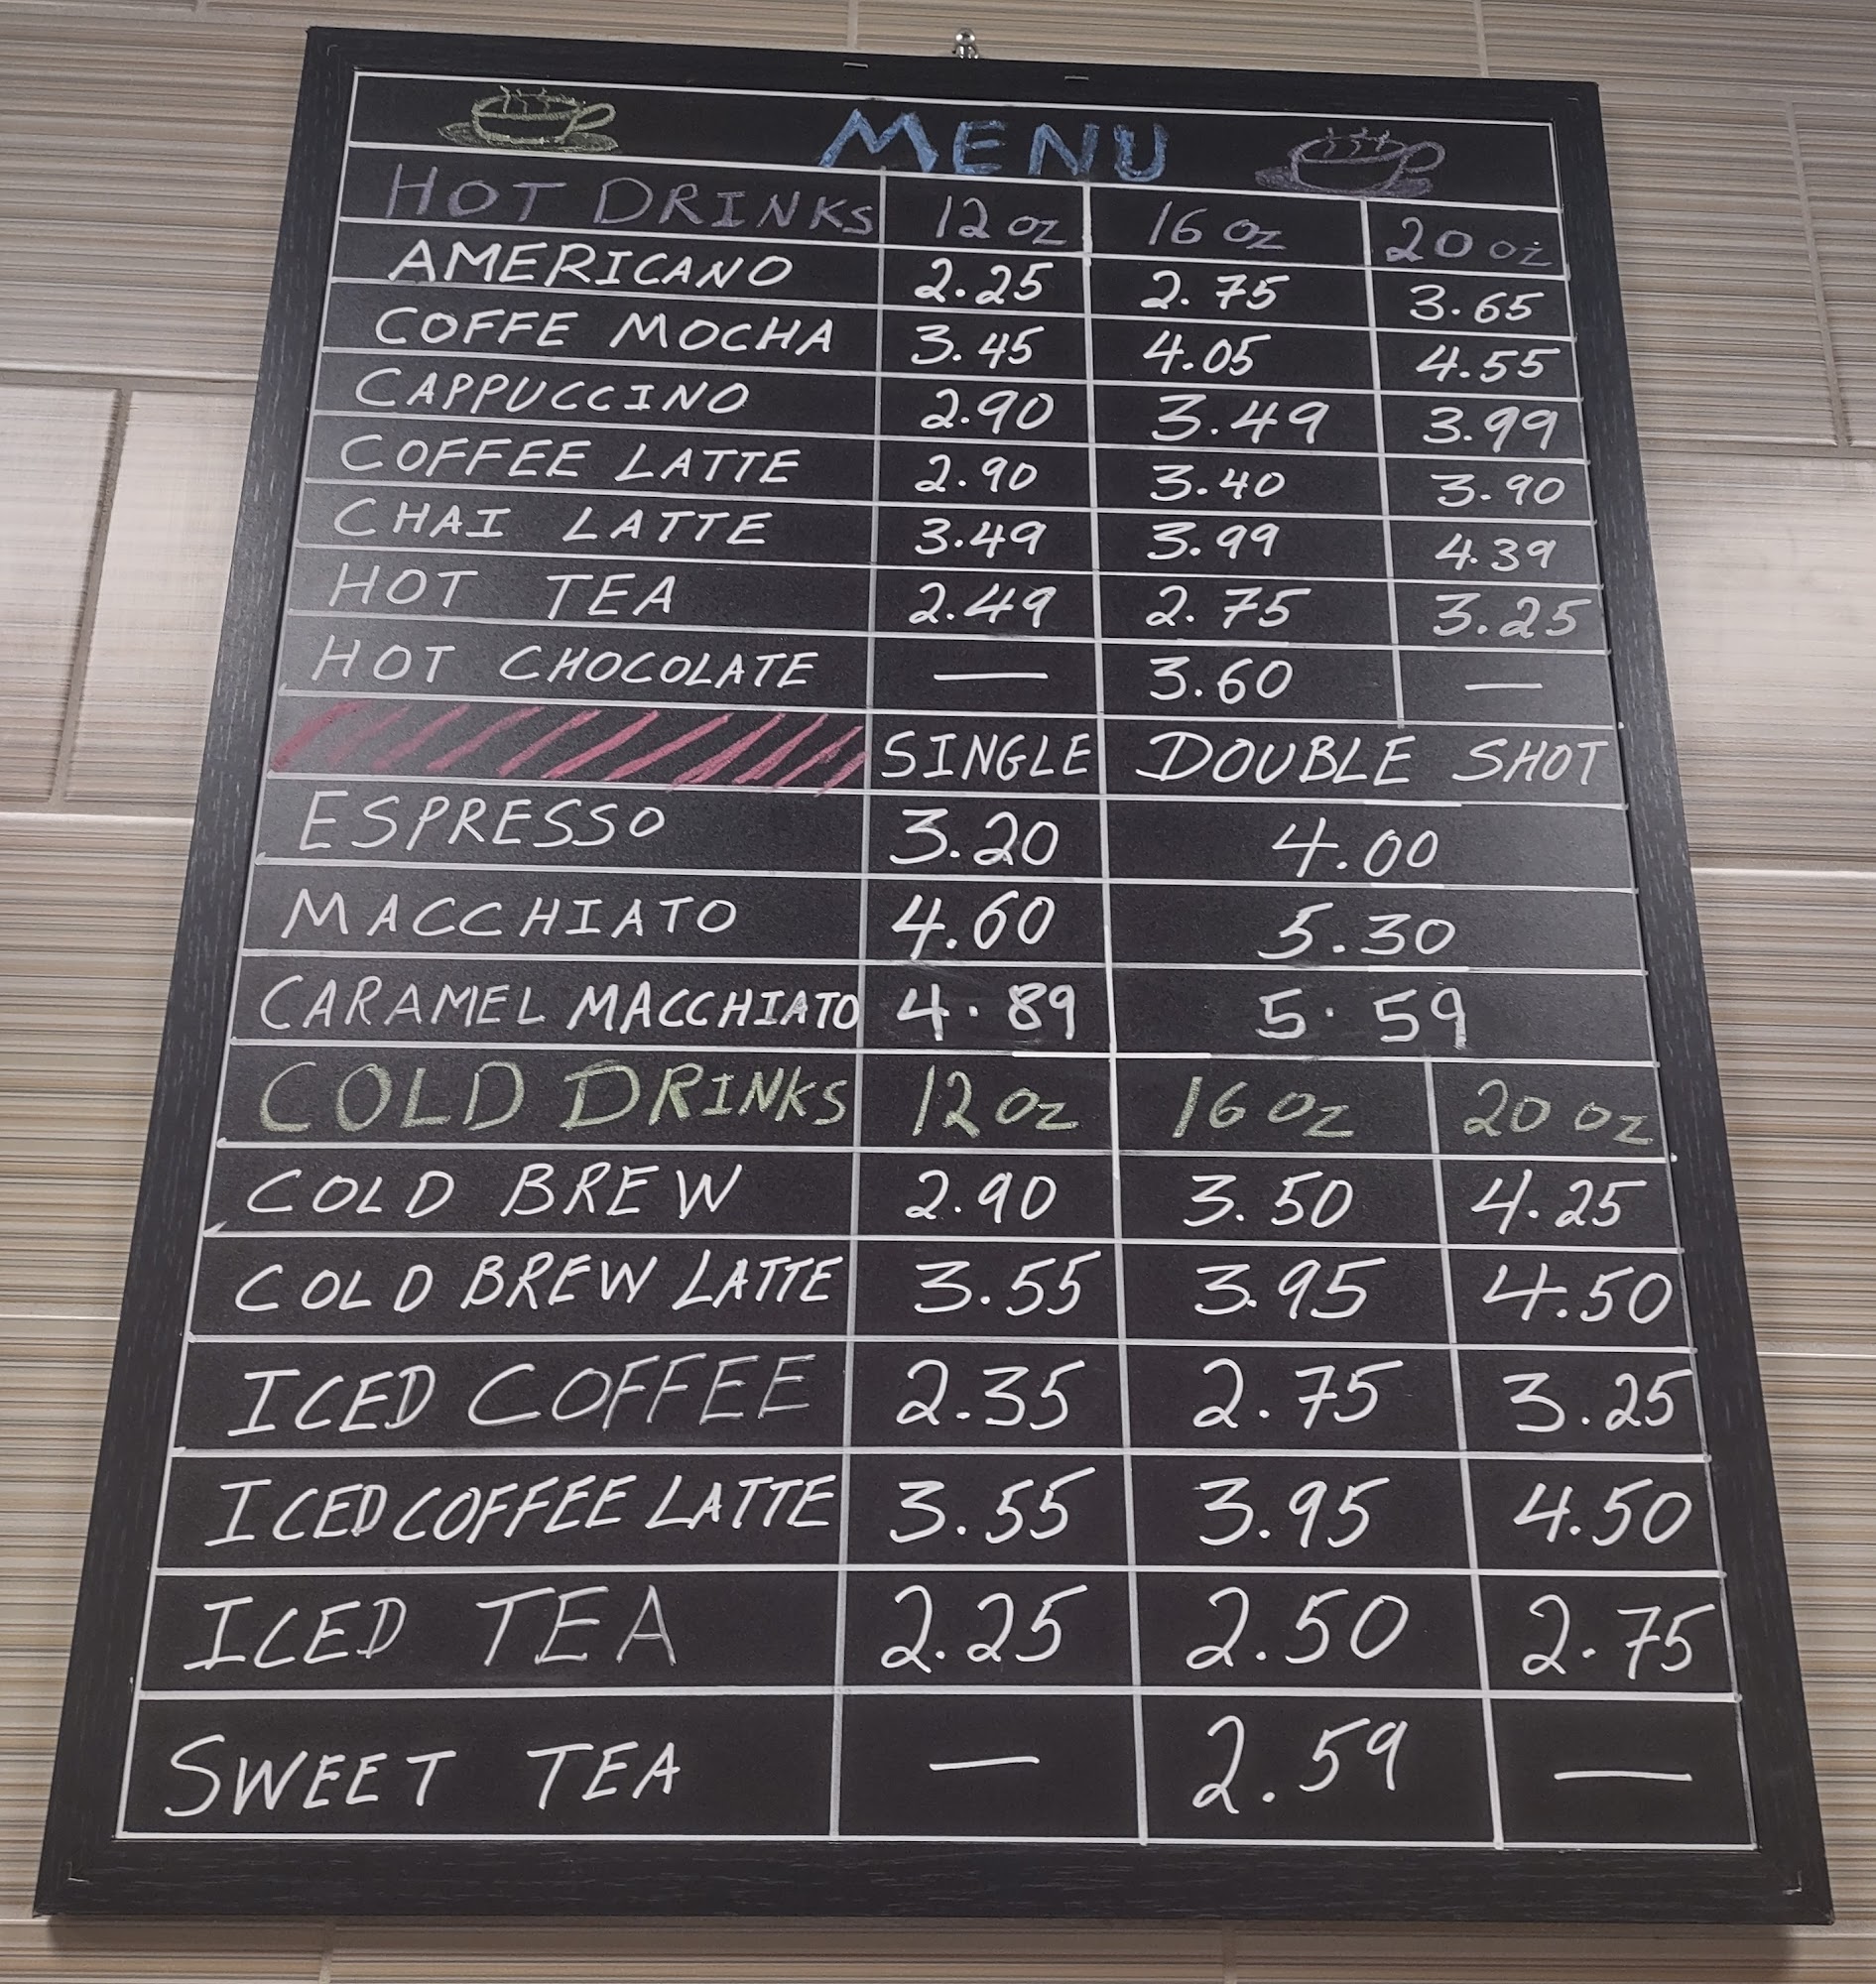 MENU
HOT DRINKS 12 oz 16 oz 20 oz
AMERICANO 2.25 2.75 3.65
COFFE MOCHA 3.45 4.05 4.55
CAPPUCCINO 2.90 3.49 3.99
COFFEE LATTE 2.90 3.40 3.90
CHAI LATTE 3.49 3.99 4.39
HOT TEA 2.49 2.75 3.25
HOT CHOCOLATE — 3.60 —
SINGLE DOUBLE SHOT
ESPRESSO 3.20 4.00
MACCHIATO 4.60 5.30
CARAMEL MACCHIATO 4.89 5.59
COLD DRINKS 12 oz 16 oz 20 oz
COLD BREW 2.90 3.50 4.25
COLD BREW LATTE 3.55 3.95 4.50
ICED COFFEE 2.35 2.75 3.25
ICED COFFEE LATTE 3.55 3.95 4.50
ICED TEA 2.25 2.50 2.75
SWEET TEA — 2.59 —